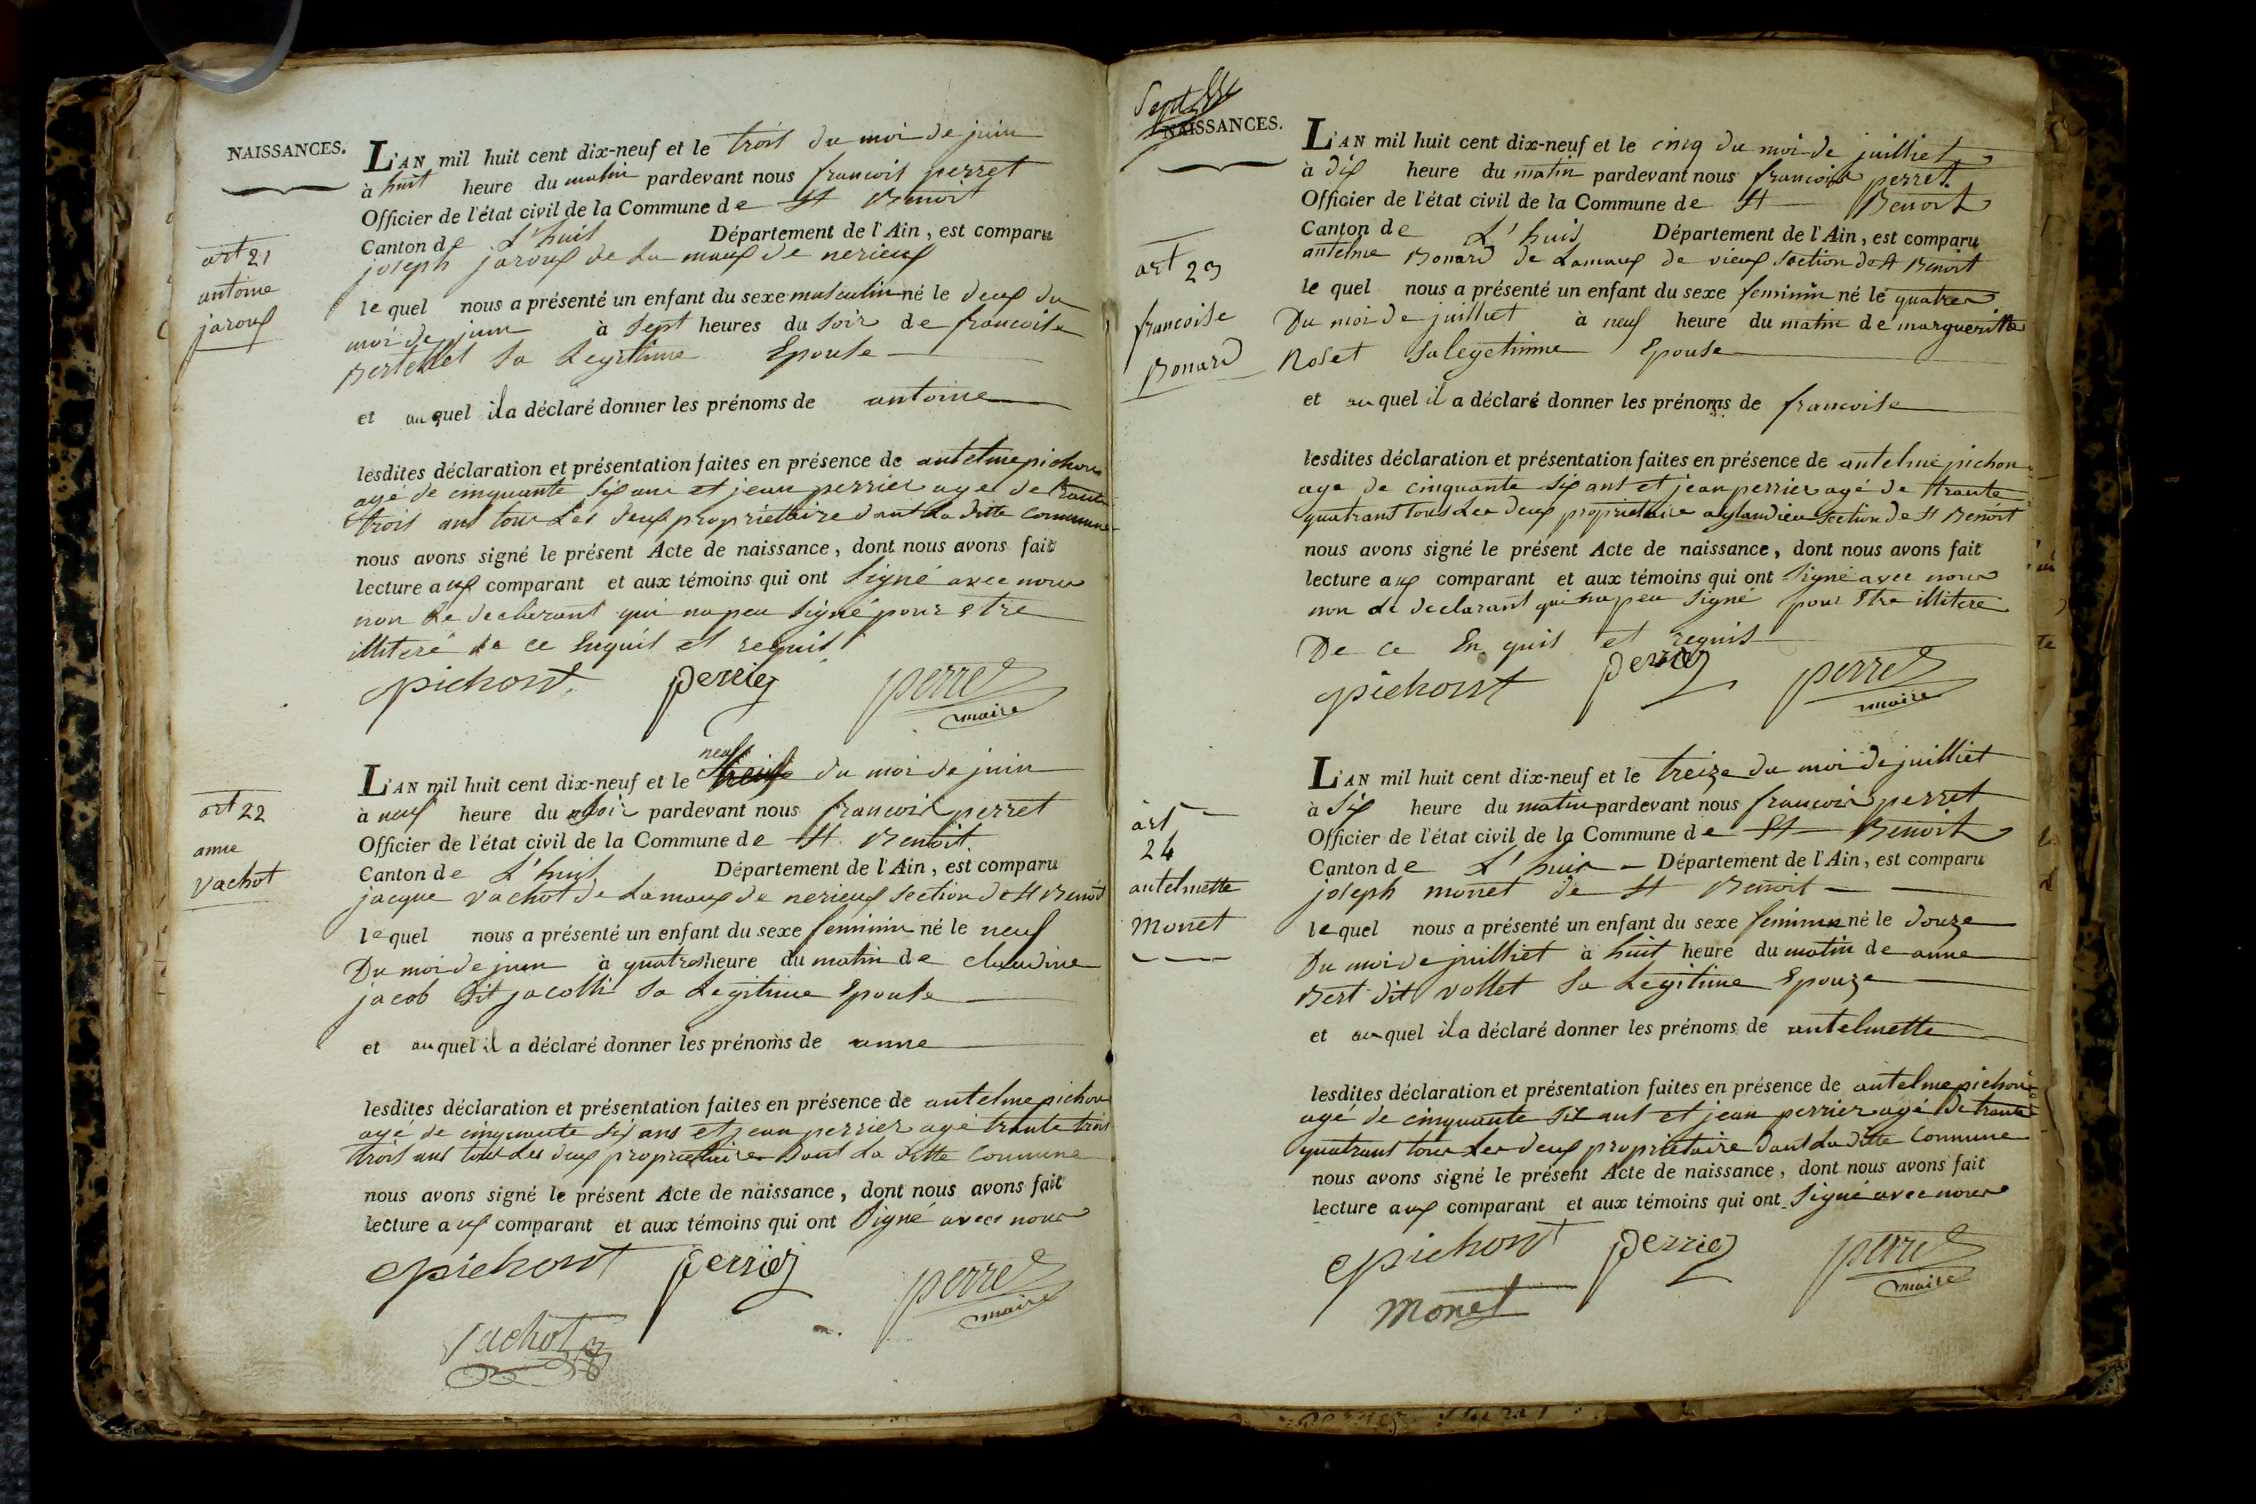 NAISSANCES.
art 21
antoine
jaroux
L'AN mil huit cent dix-neuf et le trois du moi de juin
à huit heure du matin pardevant nous francois perret
Officier de l'état civil de la Commune de St Benoit
Canton de L'huis Département de l'Ain, est comparu
joseph jaroux de La maux de nerieux
le quel nous a présenté un enfant du sexe masculin né le deux du
moi de juin à Sept heures du soir de francoise
Bertellet sa Legitime Epouse
et au quel il a déclaré donner les prénoms de antoine
lesdites déclaration et présentation faites en présence de antelme pichon
agé de cinquante six ans et jean perrier age de trante
trois ans tous Les deux proprietaire dans La ditte commune
nous avons signé le présent Acte de naissance, dont nous avons fait
lecture aux comparant et aux témoins qui ont Signé avec nous
non Le declarant qui na peu Signé pour etre
illiteré de ce Enquis et requis
pichont perrier perret
maire
art 22
anne
vachot
neuf
L'AN mil huit cent dix-neuf et le du moi de juin
à neuf heure du soir pardevant nous francois perret
Officier de l'état civil de la Commune de St Benoit.
Canton de L'huis Département de l'Ain, est comparu
jacque vachot de Lamaux de nerieux section de St Benoit
lequel nous a présenté un enfant du sexe feminin né le neuf
Du moi de juin à quatre heure du matin de claudine
jacob dit jacolli sa Legitime Epouse
et au quel il a déclaré donner les prénoms de anne
lesdites déclaration et présentation faites en présence de antelme pichon
agé de cinquante six ans et jean perrier agé trante trois
trois ans tous Les deux proprietaire Dans La ditte Commune
nous avons signé le présent Acte de naissance, dont nous avons fait
lecture aux comparant et aux témoins qui ont Signé avec nous
pichont perrier perret
maire
vachot
NAISSANCES.
art 23
francoise
Bonard
L'AN mil huit cent dix-neuf et le cinq du moi de juilliet
à dix heure du matin pardevant nous francois perret
Officier de l'état civil de la Commune de St Benoit
Canton de L'huis Département de l'Ain, est comparu
antelme Bonard de Lamaux de vieux section de St Benoit
le quel nous a présenté un enfant du sexe feminin né le quatre
Du moi de juilliet à neuf heure du matin de margueritte
Roset sa legetimme Epouse
et au quel il a déclaré donner les prénoms de francoise
lesdites déclaration et présentation faites en présence de antelme pichon
age de cinquante six ans et jean perrier agé de trante
quatrans tous Les deux proprietaire a glandieu section de St Benoit
nous avons signé le présent Acte de naissance, dont nous avons fait
lecture aux comparant et aux témoins qui ont Signé avec nous
non Le declarant qui na peu Signé pour Etre illiteré
De ce Enquis et requis
pichont perrier perret
maire
art
24
antelmette
monet
L'AN mil huit cent dix-neuf et le treize du moi de juilliet
à six heure du matin pardevant nous francois perret
Officier de l'état civil de la Commune de St Benoit
Canton de L'huis Département de l'Ain, est comparu
joseph monet de St Benoit
lequel nous a présenté un enfant du sexe feminin né le douze
Du moi de juilliet à huit heure du matin de anne
Bert dit vollet sa Legitime Epouze
et au quel il a déclaré donner les prénoms de antelmette
lesdites déclaration et présentation faites en présence de antelme pichon
agé de cinquante six ans et jean perrier agé de trante
quatrans tous Les deux proprietaire dans La ditte Commune
nous avons signé le présent Acte de naissance, dont nous avons fait
lecture aux comparant et aux témoins qui ont Signé avec nous
pichont perrier perret
maire
monet